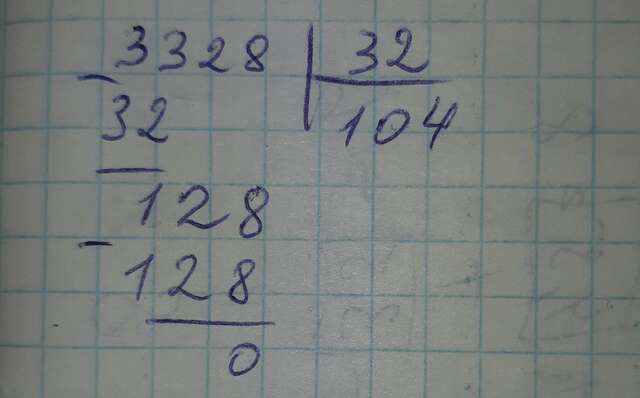 3328 | 32
- 32 104
128
- 128
0